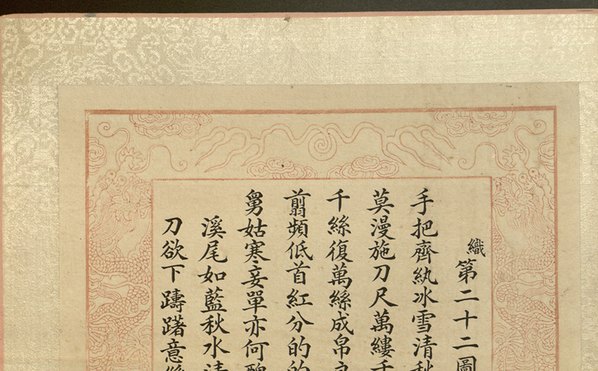 織第二十二圖
手把齊紈冰雪清秋
莫漫施刀尺萬縷千
千絲復萬絲成帛
翦頻低首紅分的的
舅姑寒妾單亦何
溪尾如藍秋水清
刀欲下躊躇意